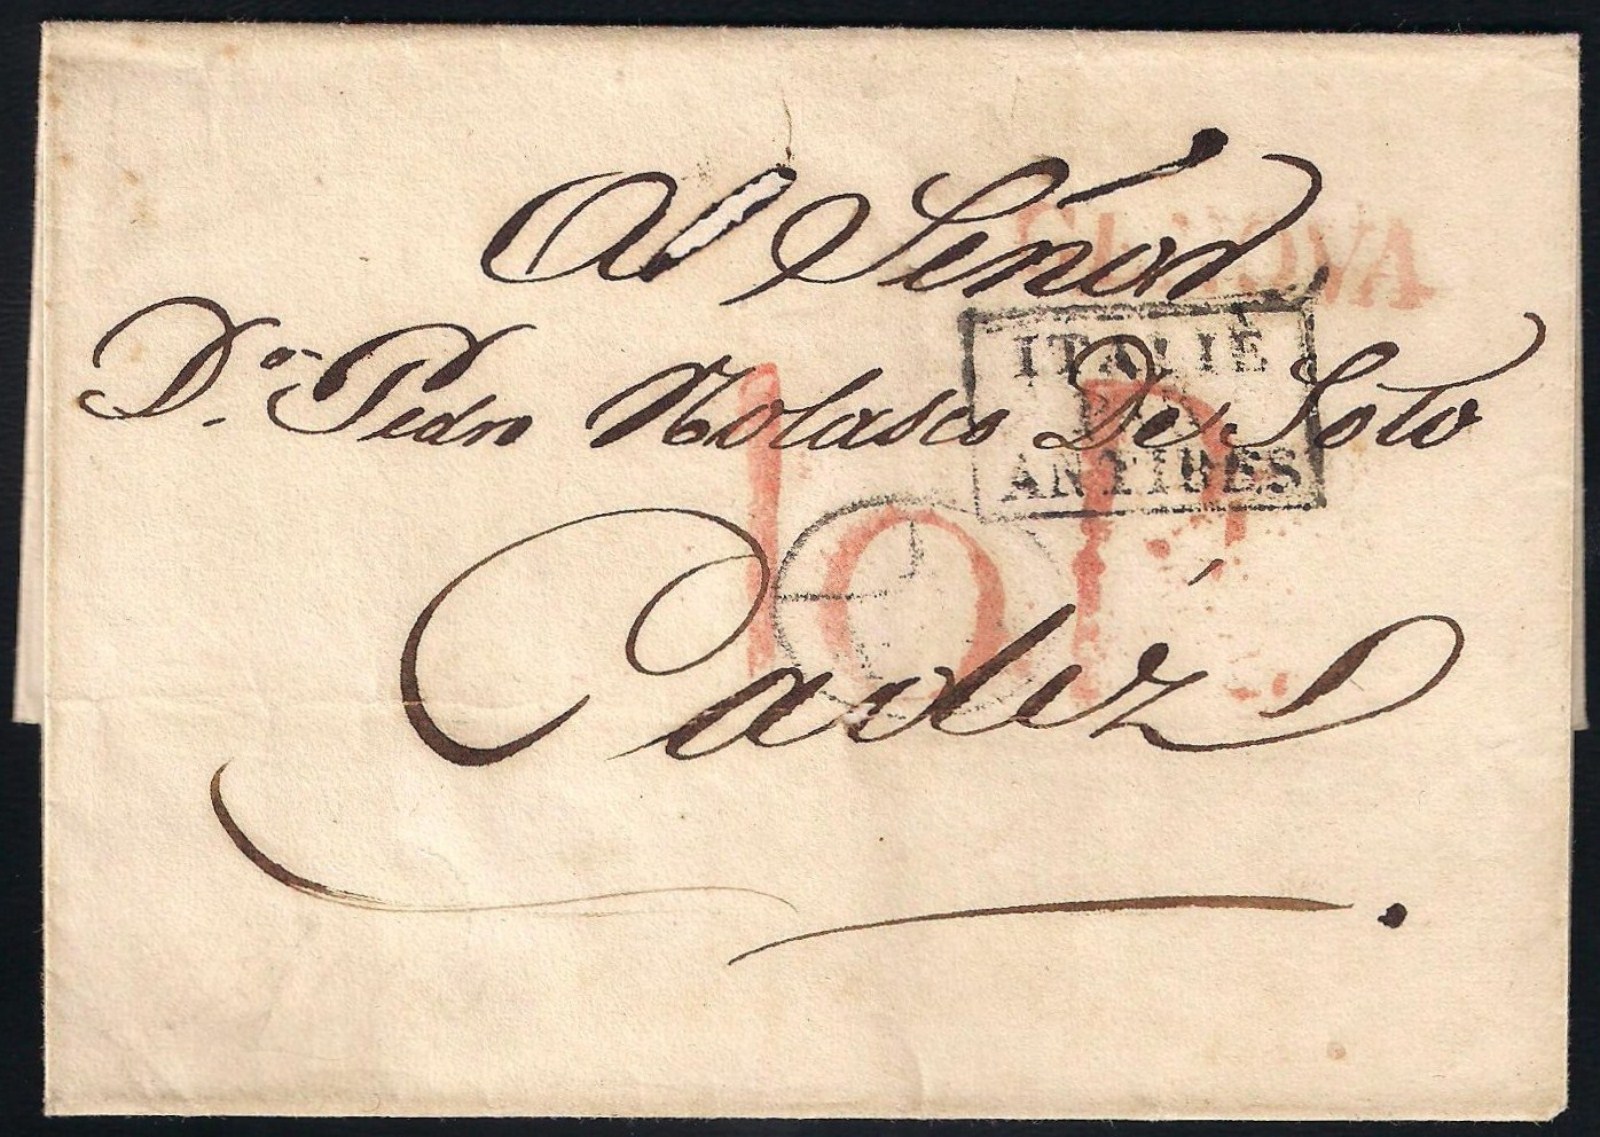 Al Señor
GENOVA
Dn. Pedro Nolasco De Soto
ITALIE
PAR
ANTIBES
10 R
Cadiz